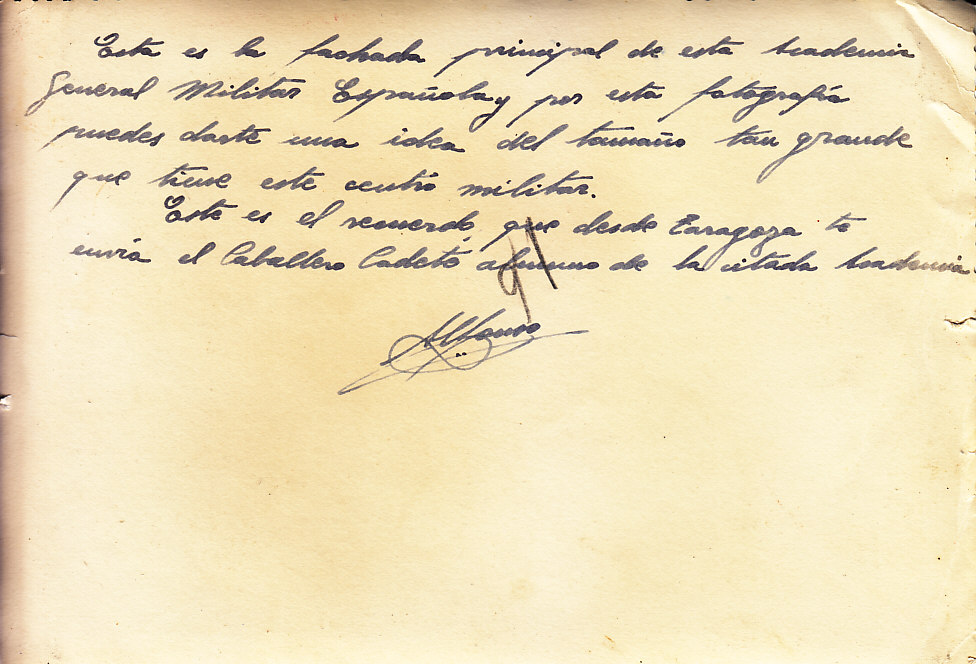 Esta es la fachada principal de esta Academia
General Militar Española y por esta fotografía
puedes darte una idea del tamaño tan grande
que tiene este centro militar.
Este es el recuerdo, que desde Zaragoza te
envía el Caballero Cadete alumno de la citada Academia.
91
Alfonso